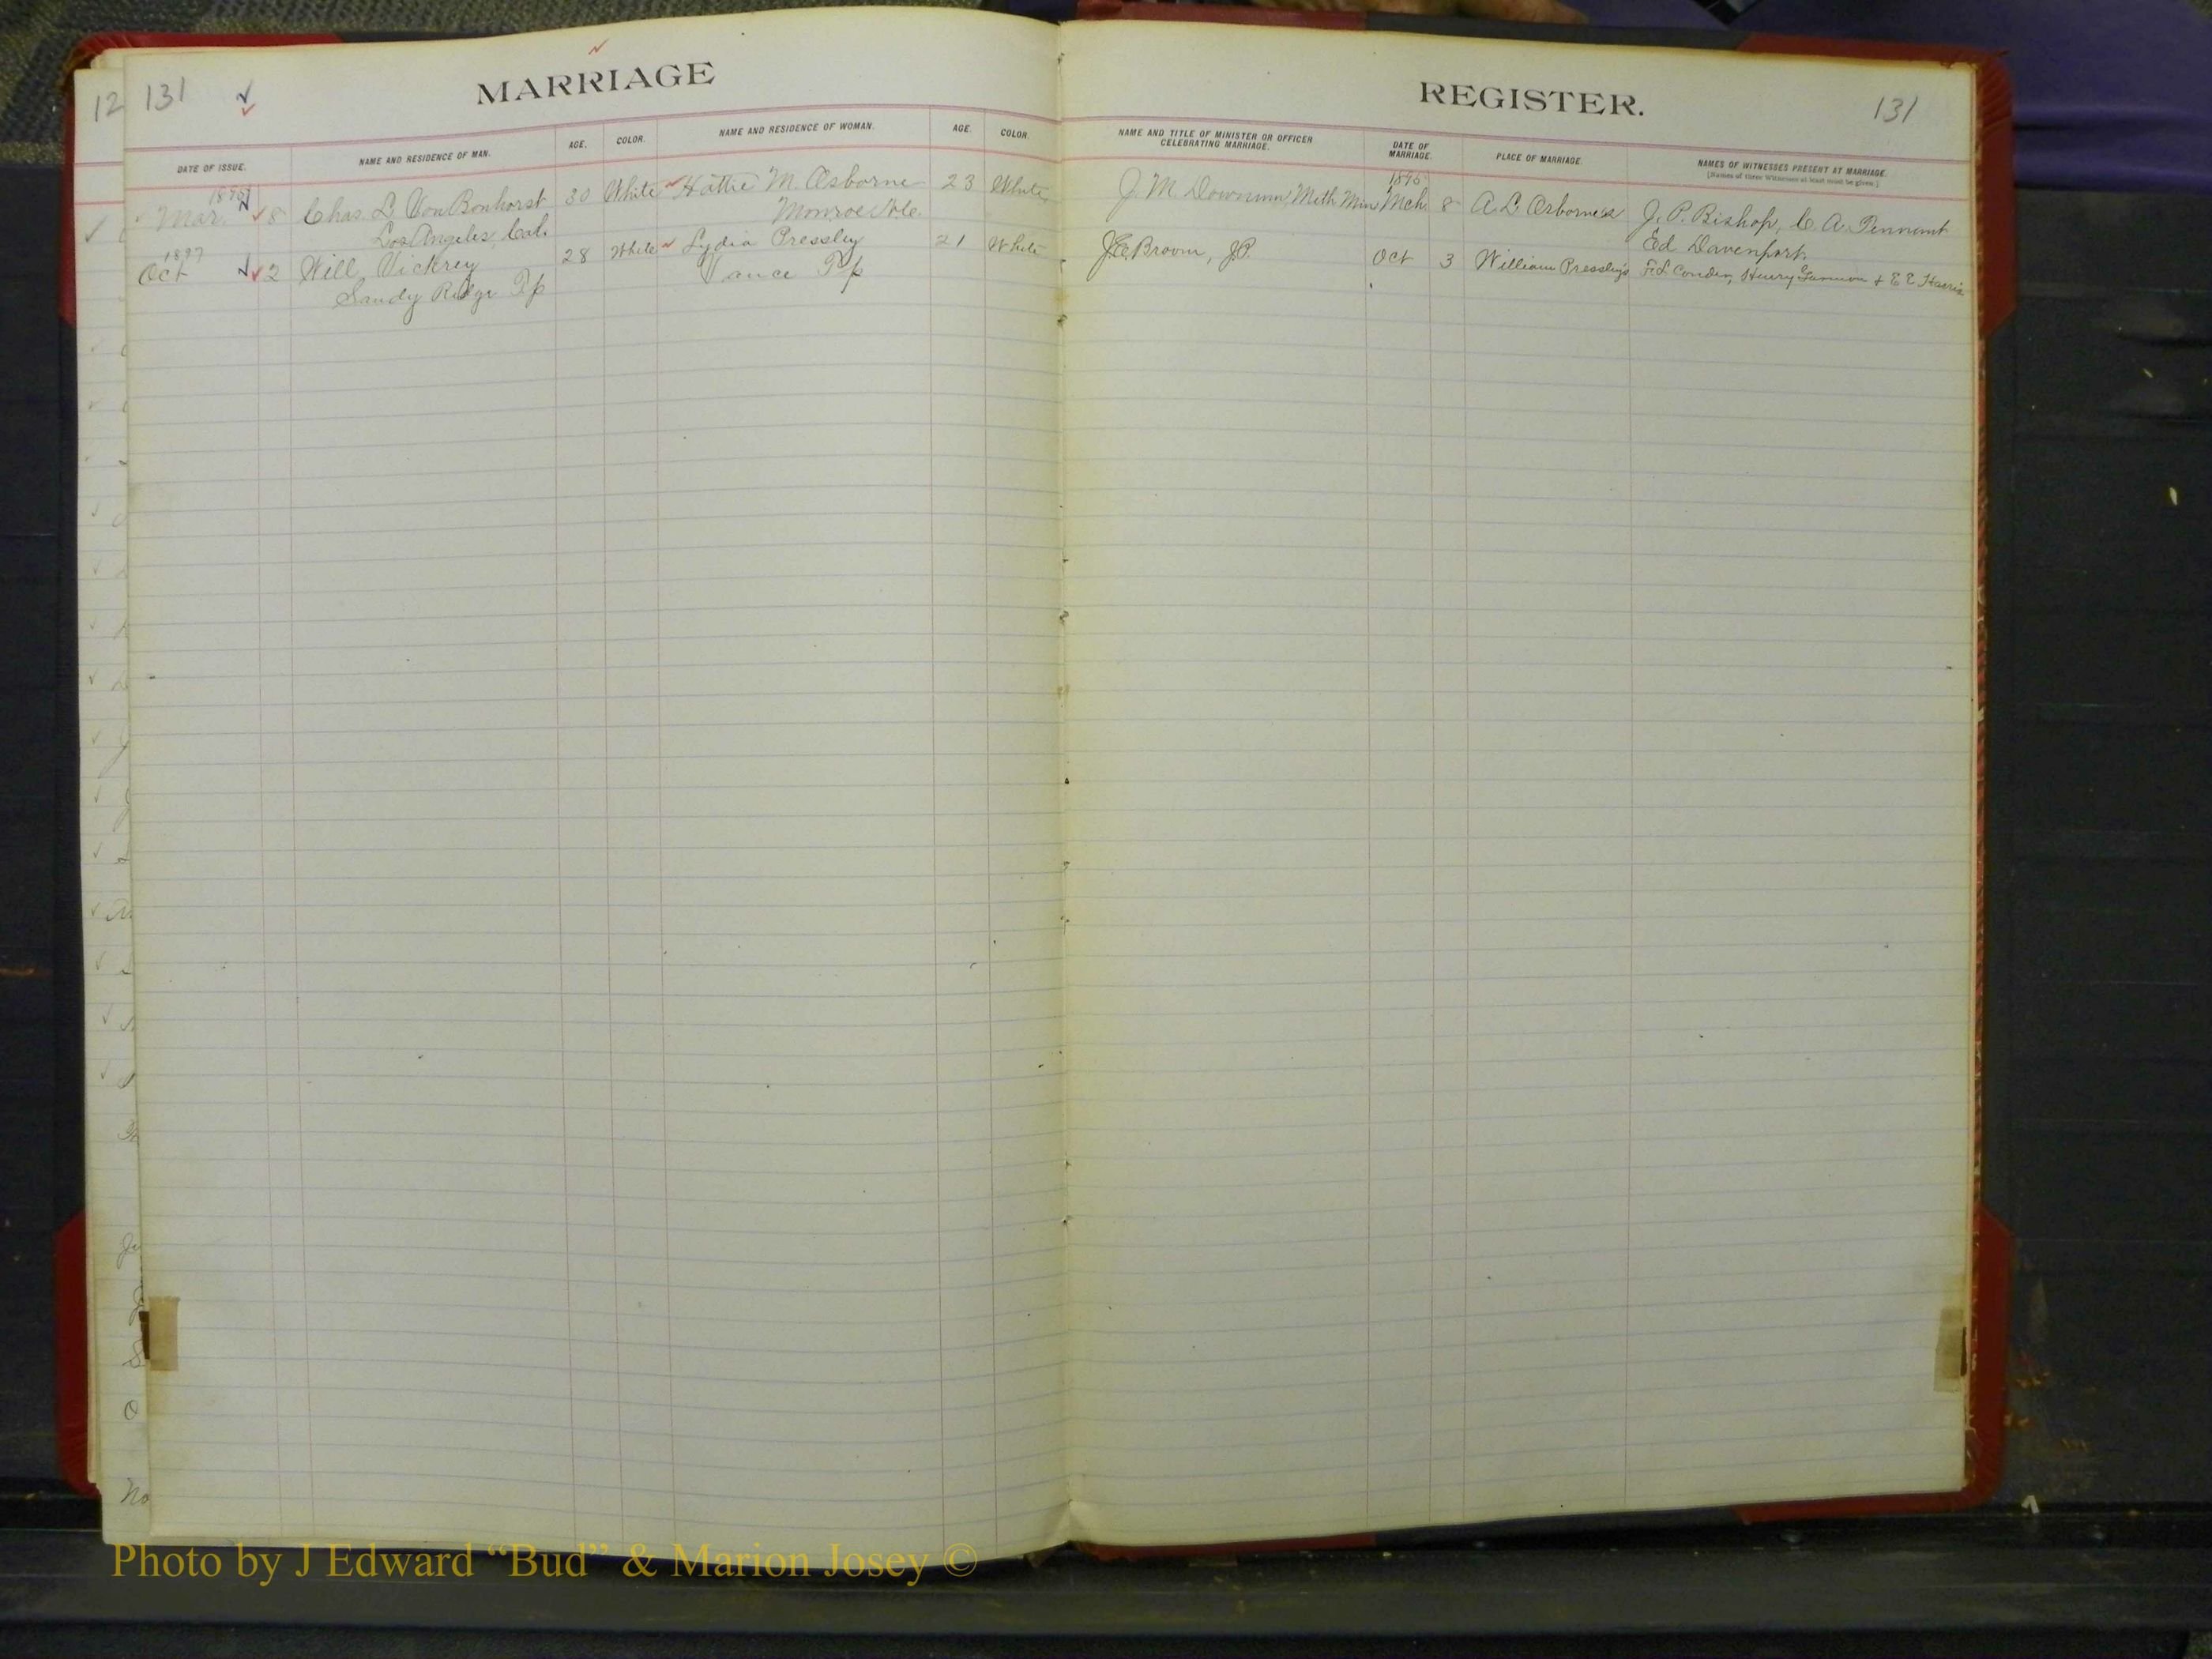 12 131
MARRIAGE
REGISTER.
131
DATE OF ISSUE. NAME AND RESIDENCE OF MAN. AGE. COLOR. NAME AND RESIDENCE OF WOMAN. AGE. COLOR.
NAME AND TITLE OF MINISTER OR OFFICER CELEBRATING MARRIAGE. DATE OF MARRIAGE. PLACE OF MARRIAGE. NAMES OF WITNESSES PRESENT AT MARRIAGE.
[Names of three Witnesses at least must be given.]
Mar. 8 Chas. L. Von Bonhorst 30 White Hattie M. Osborne 23 White J. M. Downum Meth Min Mch 8 A. L. Osborne's J. P. Bishop, C. A. Tennant
Los Angeles, Cal. Monroe Ed Davenport.
1897
Oct 2 Will Vickrey 28 White Lydia Pressley 21 White Broom, J.P. Oct 3 William Pressley's Henry + E E Harris
Sandy Ridge Tp Vance Tp
No
Photo by J Edward “Bud” & Marion Josey ©